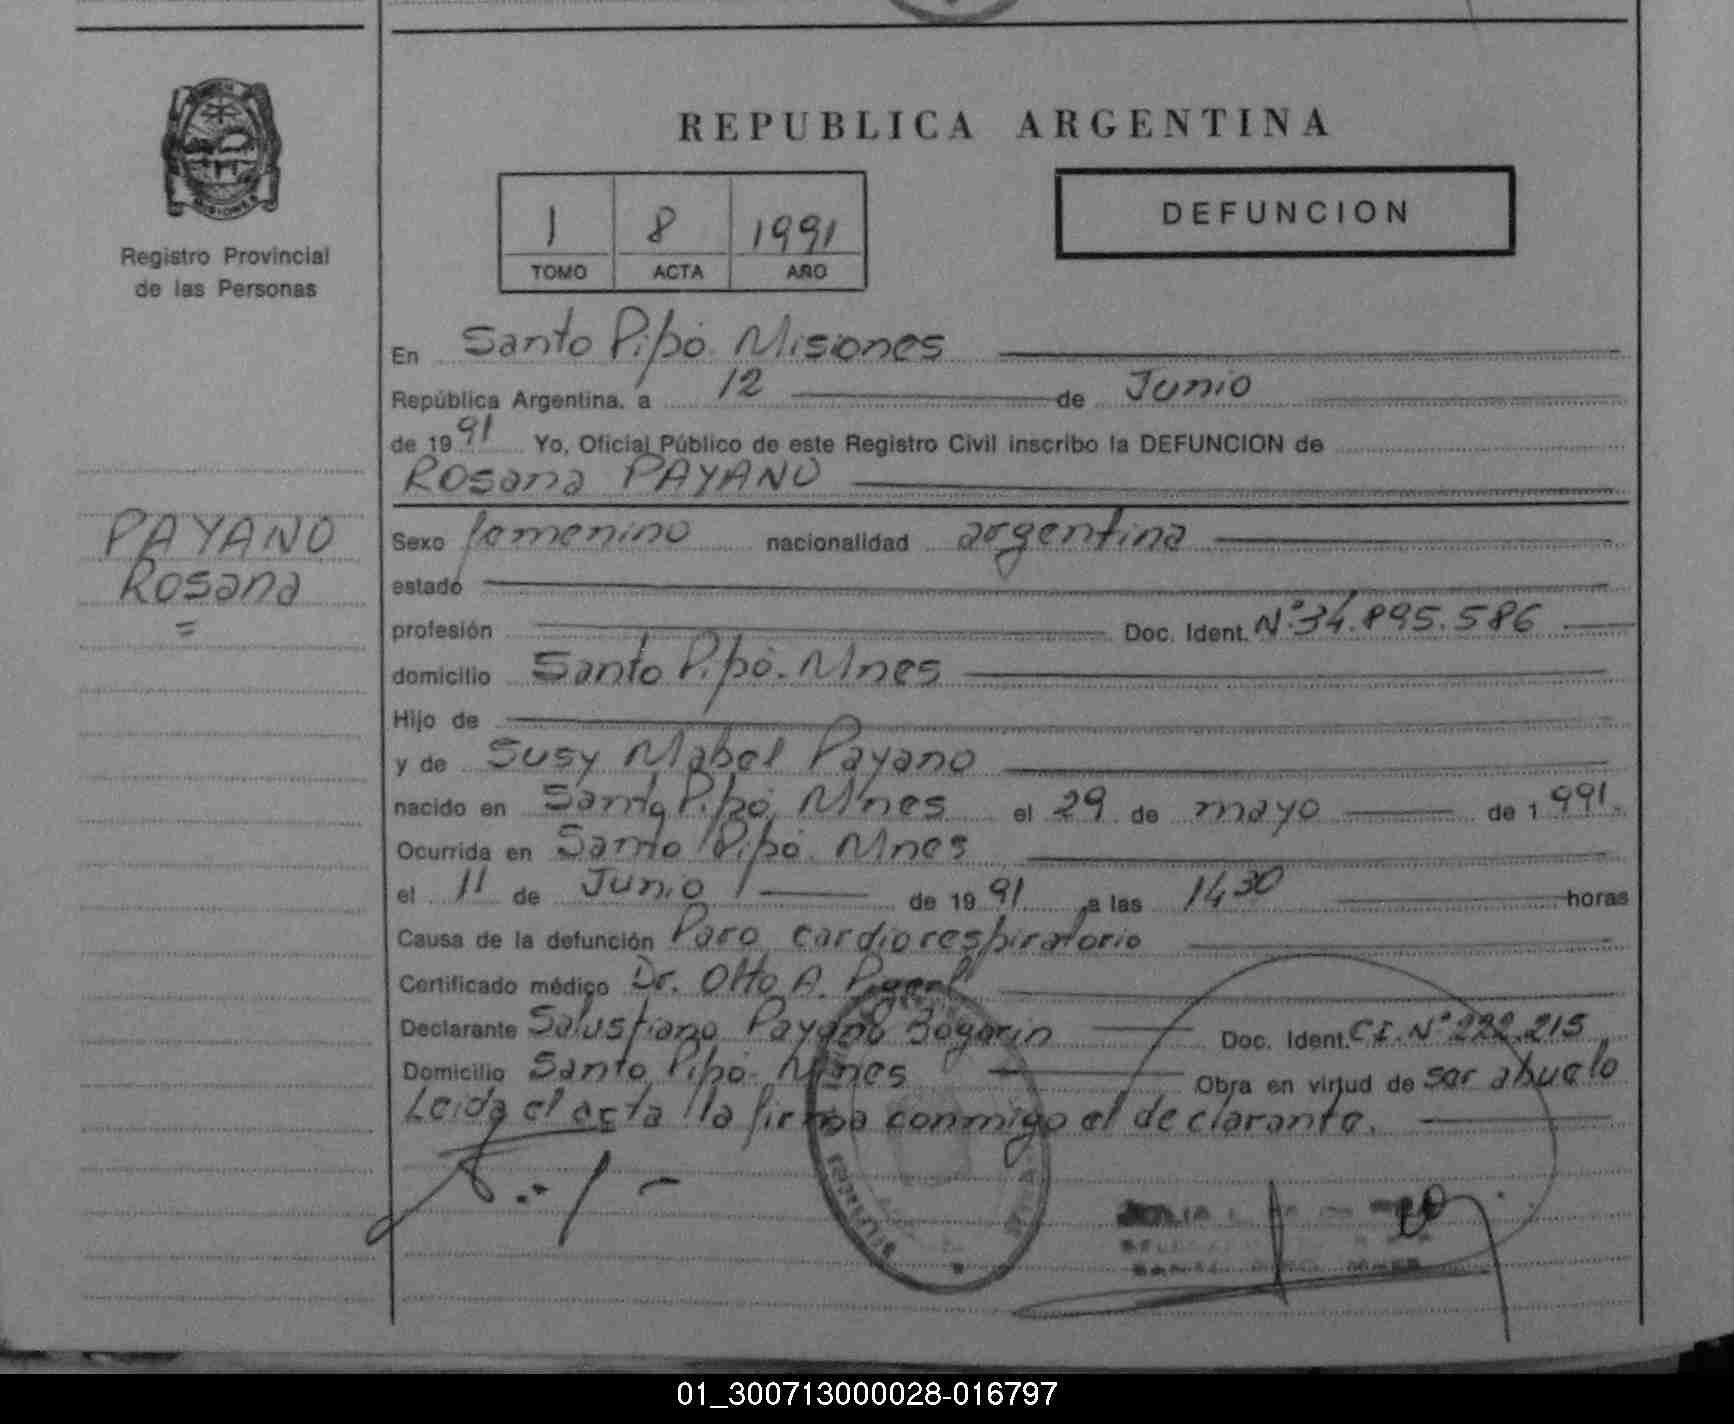 REPUBLICA ARGENTINA
MISIONES
Registro Provincial
de las Personas
1 8 1991
TOMO ACTA AÑO
DEFUNCION
En Santo Pipó. Misiones
República Argentina, a 12 de Junio
de 1991 Yo, Oficial Público de este Registro Civil inscribo la DEFUNCION de
Rosana PAYANO
PAYANO
Rosana
=
Sexo femenino nacionalidad argentina
estado
profesión Doc. Ident. Nº 34.895.586
domicilio Santo Pipó. Mnes
Hijo de
y de Susy Mabel Payano
nacido en Santo Pipó, Mnes el 29 de mayo de 1991.
Ocurrida en Santo Pipó. Mnes
el 11 de Junio de 1991 a las 14 30 horas
Causa de la defunción Paro cardiorespiratorio
Certificado médico Dr. Otto A.
Declarante Salustiano Payano Bogarin Doc. Ident. C.I. Nº 222.215
Domicilio Santo Pipó. Mnes Obra en virtud de ser abuelo
Leida el acta la firma conmigo el declarante.
01_300713000028-016797